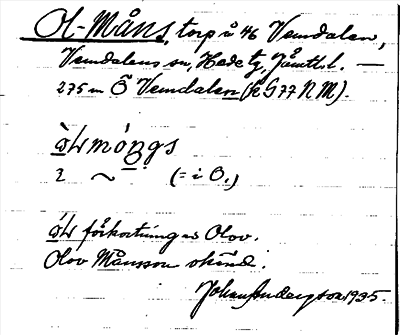 Ol-Måns, torp å 46 Vemdalen,
Vemdalens sn, Hede tg, Jämtl. l. —
275 m Ö Vemdalen (k G77 N M).
móŋgs
2 ~ (= i Ö.)
förkortning av Olov.
Olov Månsson okänd.
Johan Anderzson 1935.